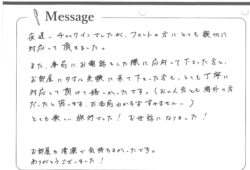 Message
夜遅いチェックインでしたが、フロントの方にとても親切に
対応して頂きました。
また、事前にお電話した際に応対して下さった方と、
お部屋にタオル交換に来て下さった方も、とても丁寧に
対応して頂けて嬉しかったです。(お二人とも海外の方
だったと思います。お名前わからずすみません…)
とても楽しい旅行でした! お世話になりました!
お部屋も清潔で気持ちよかったです。
ありがとうございました!